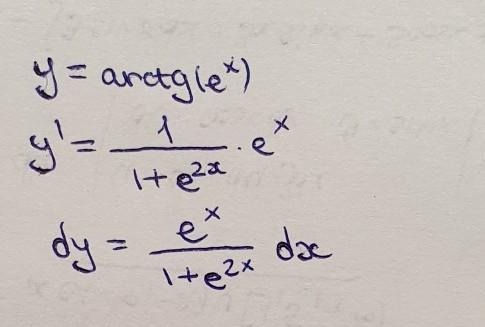 y = arctg(e^x)
y' = 1/(1+e^{2x}) · e^x
dy = e^x/(1+e^{2x}) dx